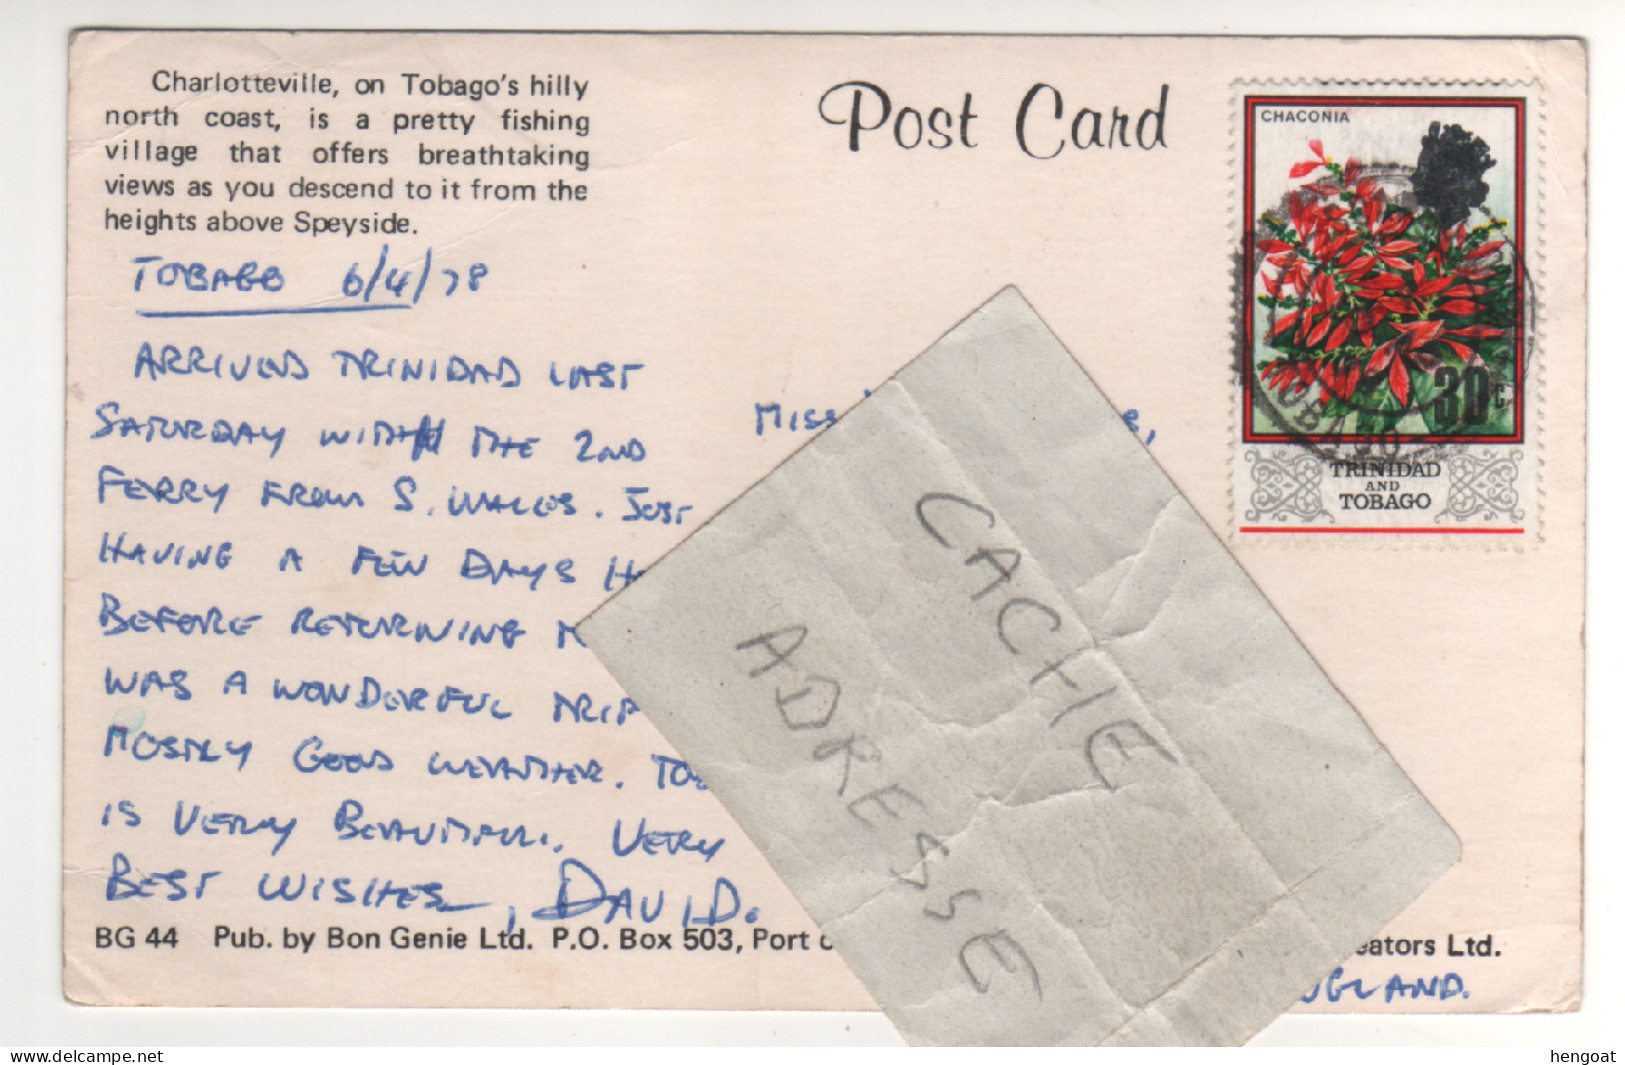 Charlotteville, on Tobago's hilly
north coast, is a pretty fishing
village that offers breathtaking
views as you descend to it from the
heights above Speyside.
Post Card
CHACONIA
30c
TOBAGO
TRINIDAD
AND
TOBAGO
TOBAGO 6/4/78
ARRIVED TRINIDAD LAST
SATURDAY WITH THE 2ND
FERRY FROM S. WALES. JUST
HAVING A FEW DAYS
BEFORE RETURNING
WAS A WONDERFUL TRIP
MOSTLY GOOD WEATHER.
IS VERY BEAUTIFUL. VERY
BEST WISHES, DAVID.
MISS
CACHE
ADRESSE
BG 44 Pub. by Bon Genie Ltd. P.O. Box 503, Port
eators Ltd.
NGLAND.
delcampe.net
hengoat